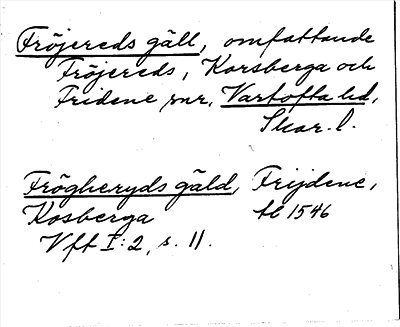 Fröjereds gäll, omfattande
Fröjereds, Korsberga och
Fridene snr, Vartofta hd,
Skar. l.
Frögheryds gäld, Frijdene,
Kosberga tl 1546
Vft I:2, s. 11.